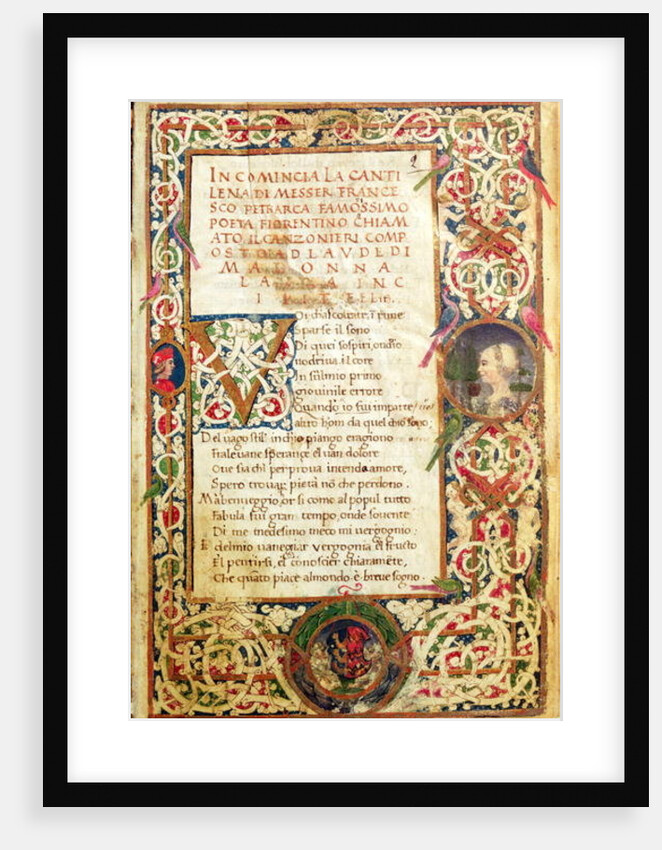 2
IN COMINCIA LA CANTI
LENA DI MESSER FRANCE
SCO PETRARCA FAMOSSIMO
POETA FIORENTINO CHIAM
ATO IL CANZONIERI COMP
OSTO AD LAVDE DI
MADONNA
LA INC
I FELIB.
VOi chascoltate ī rime
Sparse il sono
Di quei sospiri, ondio
nudriua il core
In sul mio primo
giouinile errore
Quando io fui in parte
altro hom da quel chio sono;
Del uago stil in chio piango et ragiono
Fra le uane sperançe el uan dolore
Oue sia chi per proua intenda amore,
Spero trouar pietà nō che perdono.
Ma ben ueggio, or si come al popul tutto
Fabula fui gran tempo, onde souente
Di me medesimo meco mi uergogno;
E del mio uanegiar uergogna el fructo
El pentirsi, el conoscier chiaramēte,
Che quāto piace al mondo è breue sogno.